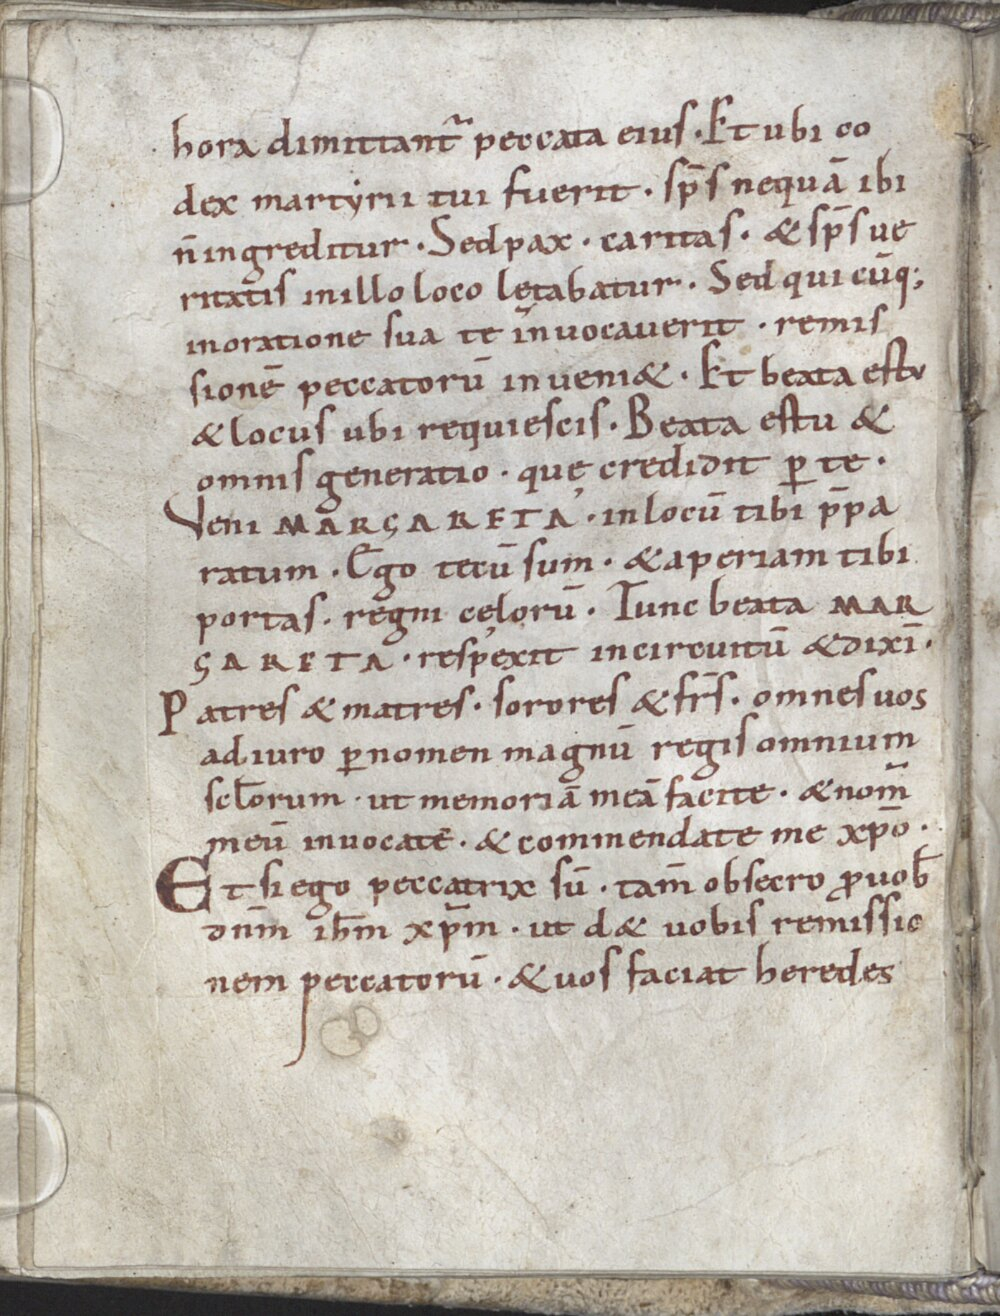 hora dimittant᷑ peccata eius · Et ubi co
dex martyrii tui fuerit · sp̄s nequā ibi
n̄ ingreditur · Sed pax · caritas · & sp̄s ue
ritatis in illo loco lętabatur · Sed qui cūq;
in oratione sua te inuocauerit · remis
sionē peccatorū inueni& · Et beata es tu
& locus ubi requiescis · Beata es tu &
omnis generatio · quę credidit ꝑ te ·
Veni MARGARETA · in locū tibi p̄pa
ratum · Ego tecū sum · & aperiam tibi
portas · regni cęlorū · Tunc beata MAR
GARETA · respexit in circuitū & dixī ·
Patres & matres · sorores & fr̄s · omnes uos
adiuro ꝑ nomen magnū regis omnium
scl̄orum · ut memoriā meā facite · & nom̄
meū inuocate · & commendate me xp̄o ·
Et si ego peccatrix sū · tam̄ obsecro ꝓ uob̄
dn̄m ih̄m xp̄m · ut d& uobis remissio
nem peccatorū · & uos faciat heredes